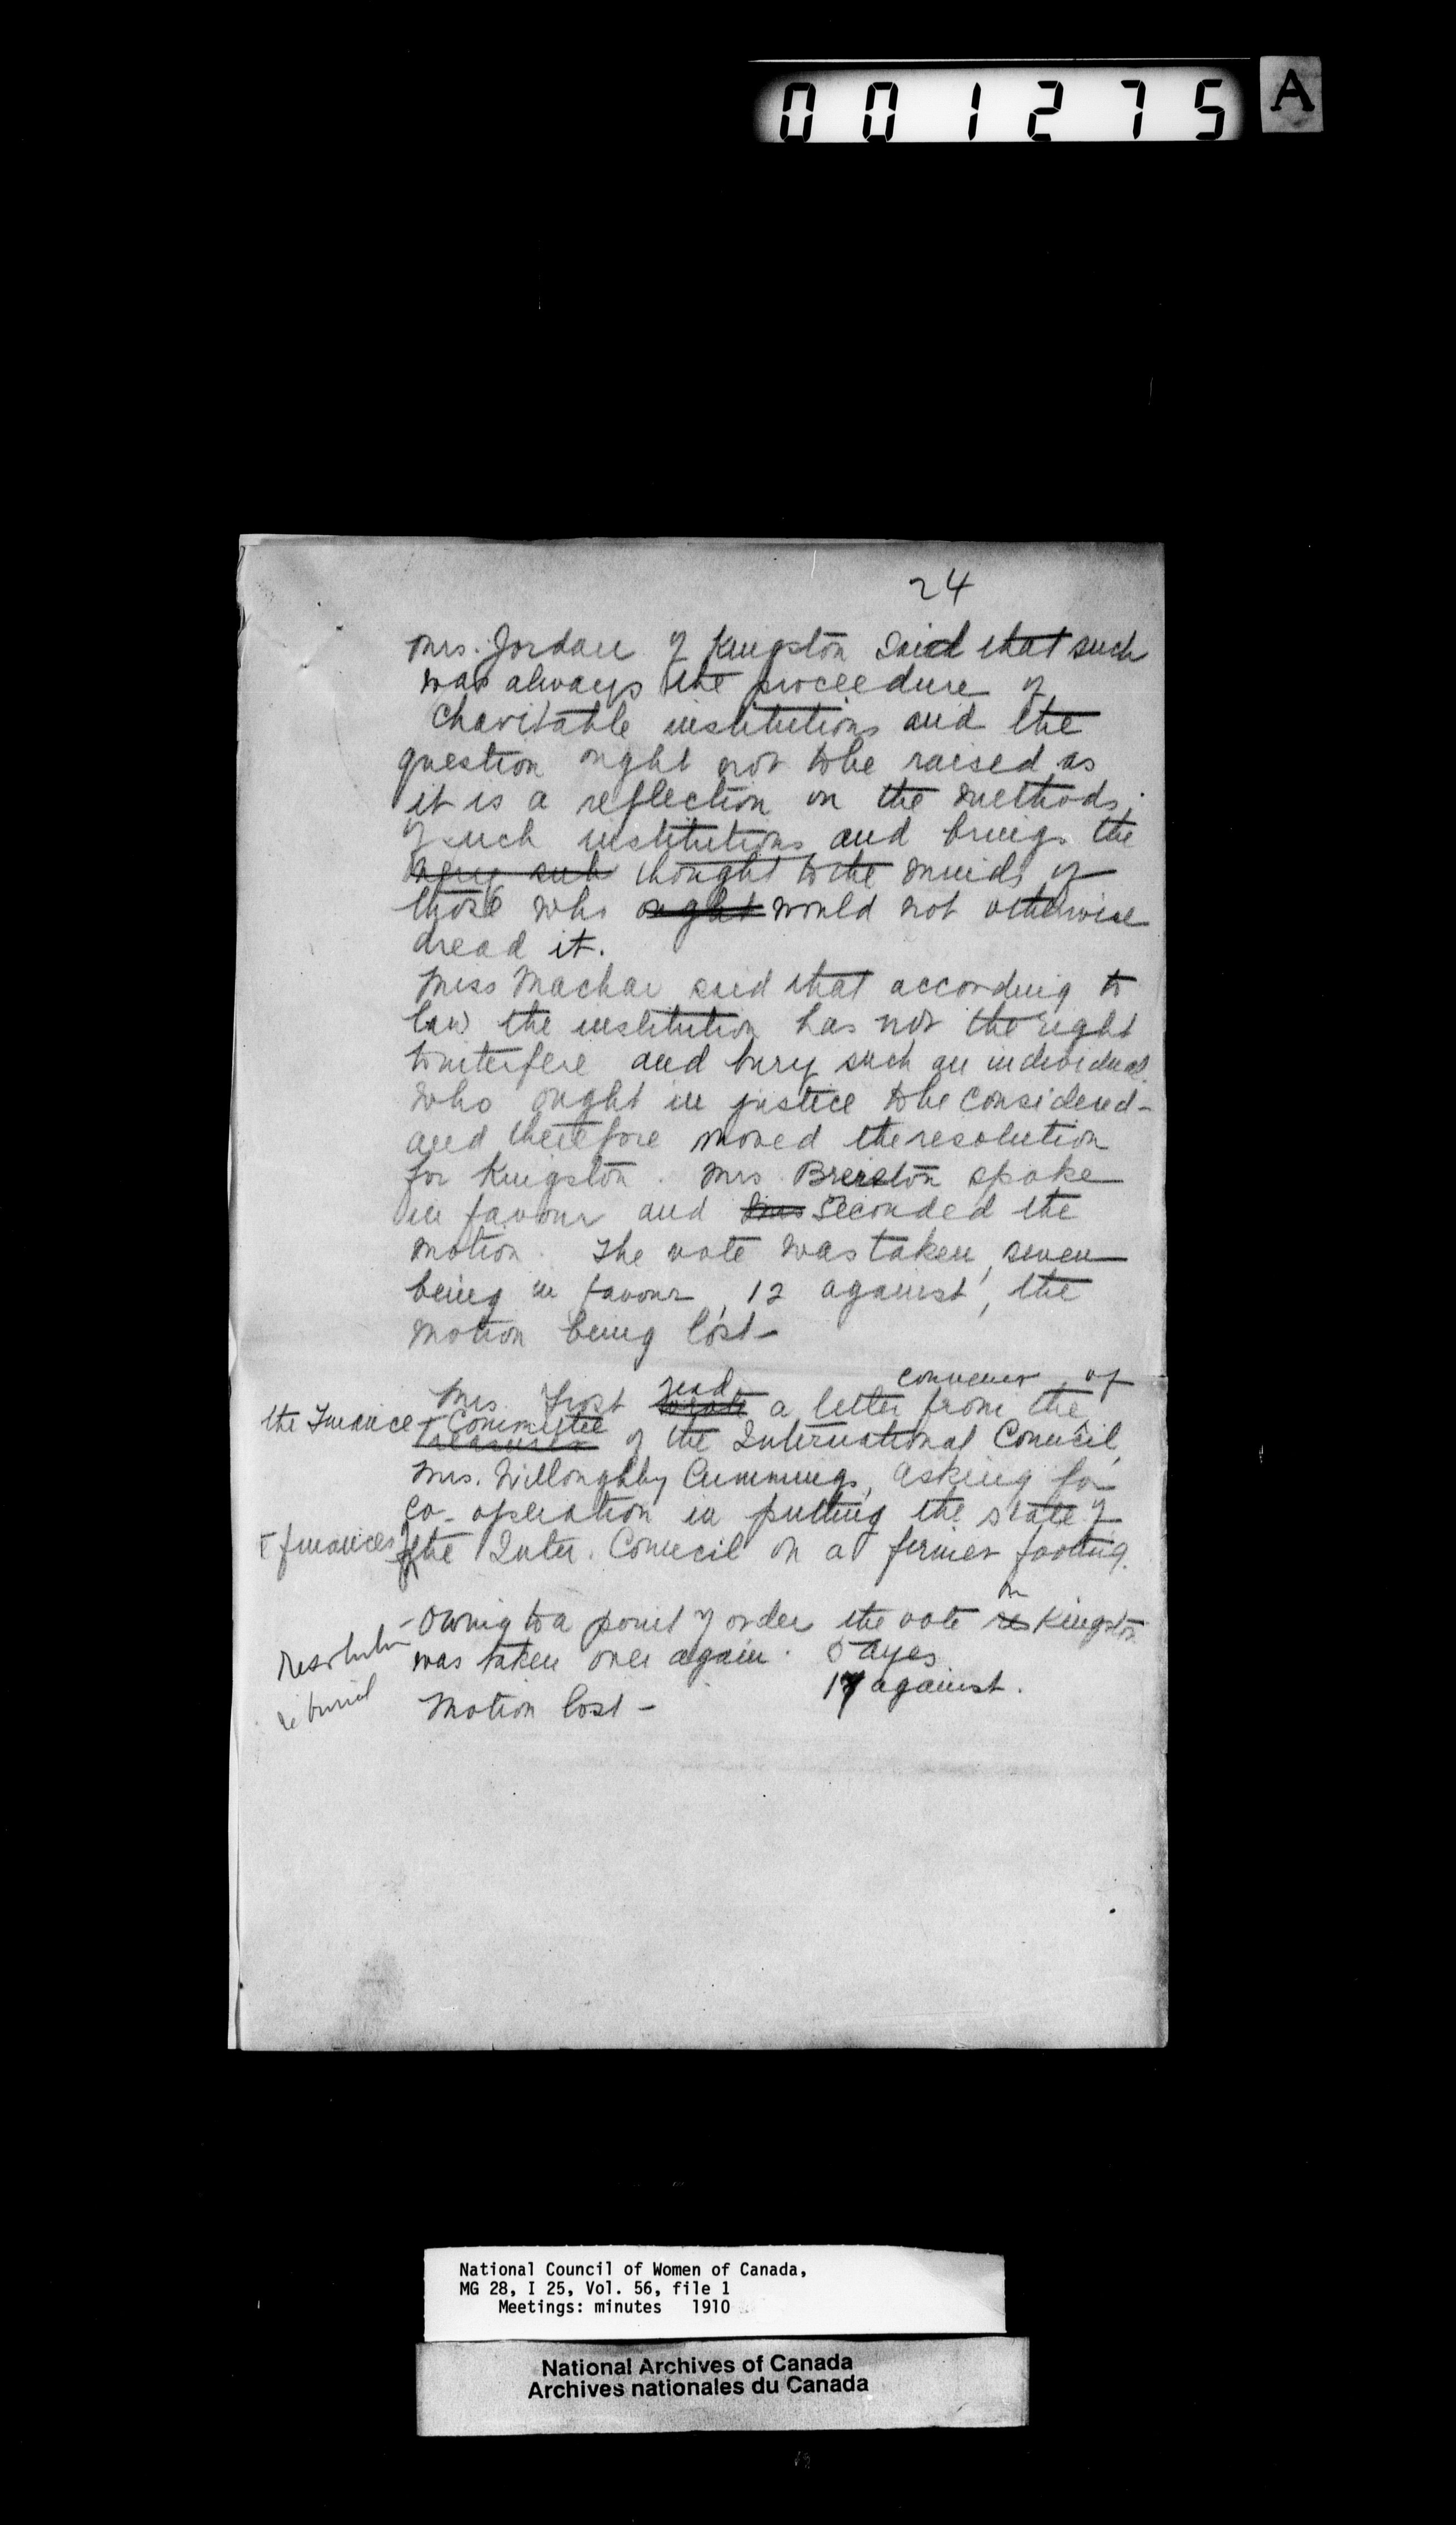 001275 A
24
Mrs. Jordan of Kingston said that such
was always the proceedure of
charitable institutions and the
question ought not to be raised as
it is a reflection on the methods
of such institutions and brings the
thought to the minds of
those who ought would not otherwise
dread it.
Miss Machar said that according to
law the institution has not the right
to interfere and bury such an individual
who ought in justice to be considered -
and therefore moved the resolution
for Kingston. Mrs. spoke
in favour and Mrs seconded the
motion. The vote was taken, seven
being in favour, 12 against, the
motion being lost -
read convener of
Mrs. Frost wrote a letter from the
the Finance Committee
treasurer of the International Council,
Mrs. Willoughby Cummings, asking for
co-operation in putting the state of
finances of the Inter. Council on a firmer footing.
on
- Owing to a point of order the vote re Kingston
Resolution was taken over again. 5 ayes
re burial 17 against.
Motion lost -
National Council of Women of Canada,
MG 28, I 25, Vol. 56, file 1
Meetings: minutes 1910
National Archives of Canada
Archives nationales du Canada